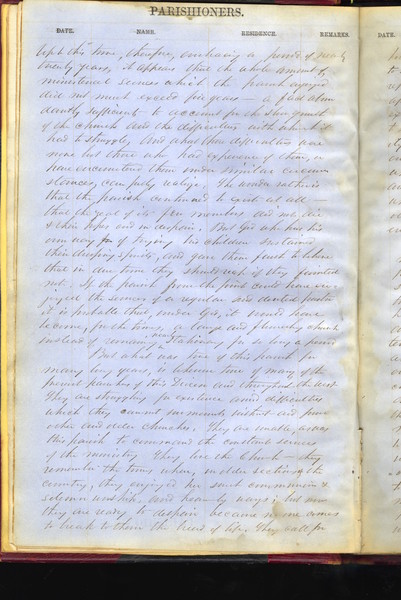 PARISHIONERS.
DATE. NAME. RESIDENCE. REMARKS. DATE.
Up to this time, therefore, embracing a period of nearly
twenty years, it appears that the whole amount of
ministerial services which the parish enjoyed
did not much exceed five years — a fact abun
dantly sufficient to account for the slow growth
of the church and the difficulties with which it
had to struggle. And what these difficulties were
none but those who had experience of them, or
have encountered them under similar circum
stances, can fully realize. The wonder rather is
that the parish continued to exist at all —
that the zeal of its few members did not die
& their hopes end in despair. But God who has his
own way of trying his children sustained
their drooping spirits, and gave them faith to believe
that in due time they should reap if they fainted
not. If the parish from the first could have en
joyed the services of a regular and devoted pastor
it is probable that, under God, it would have
become, by this time, a large and flourishing church
instead of remaining stationary for so long a period
But what was true of this parish for
many long years, is likewise true of many of the
present parishes of this Diocese and throughout the west.
They are struggling for existence amid difficulties
which they cannot surmount without aid from
other and older churches. They are unable, as was
this parish to command the constant services
of the ministry. They love the Church — they
remember the times when, in older sections of the
country, they enjoyed her sweet communion &
solemn worship, and heavenly ways; but now
they are ready to despair because no one comes
to break to them the bread of life. They call for